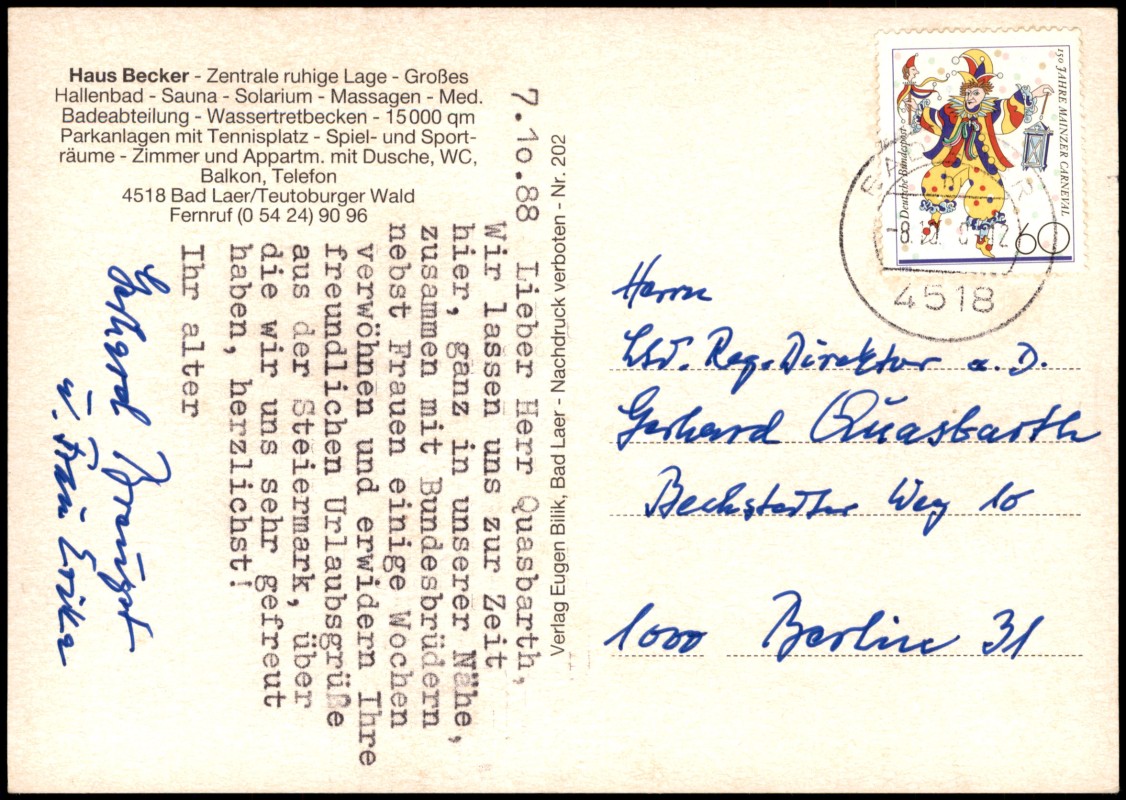 Haus Becker - Zentrale ruhige Lage - Großes
Hallenbad - Sauna - Solarium - Massagen - Med.
Badeabteilung - Wassertretbecken - 15000 qm
Parkanlagen mit Tennisplatz - Spiel- und Sport-
räume - Zimmer und Appartm. mit Dusche, WC,
Balkon, Telefon
4518 Bad Laer/Teutoburger Wald
Fernruf (0 54 24) 90 96
7.10.88 Lieber Herr Quasbarth,
Wir lassen uns zur Zeit
hier, ganz in unserer Nähe,
zusammen mit Bundesbrüdern
nebst Frauen einige Wochen
verwöhnen und erwidern Ihre
freundlichen Urlaubsgrüße
aus der Steiermark, über
die wir uns sehr gefreut
haben, herzlichst!
Ihr alter
Gerhard
u. Frau Erika
Verlag Eugen Bilik, Bad Laer - Nachdruck verboten - Nr. 202
150 JAHRE MAINZER CARNEVAL
Deutsche Bundespost
60
BAD
4518
Herrn
Ltd. Reg. Direktor a. D.
Gerhard Quasbarth
Bechstedter Weg 10
1000 Berlin 31